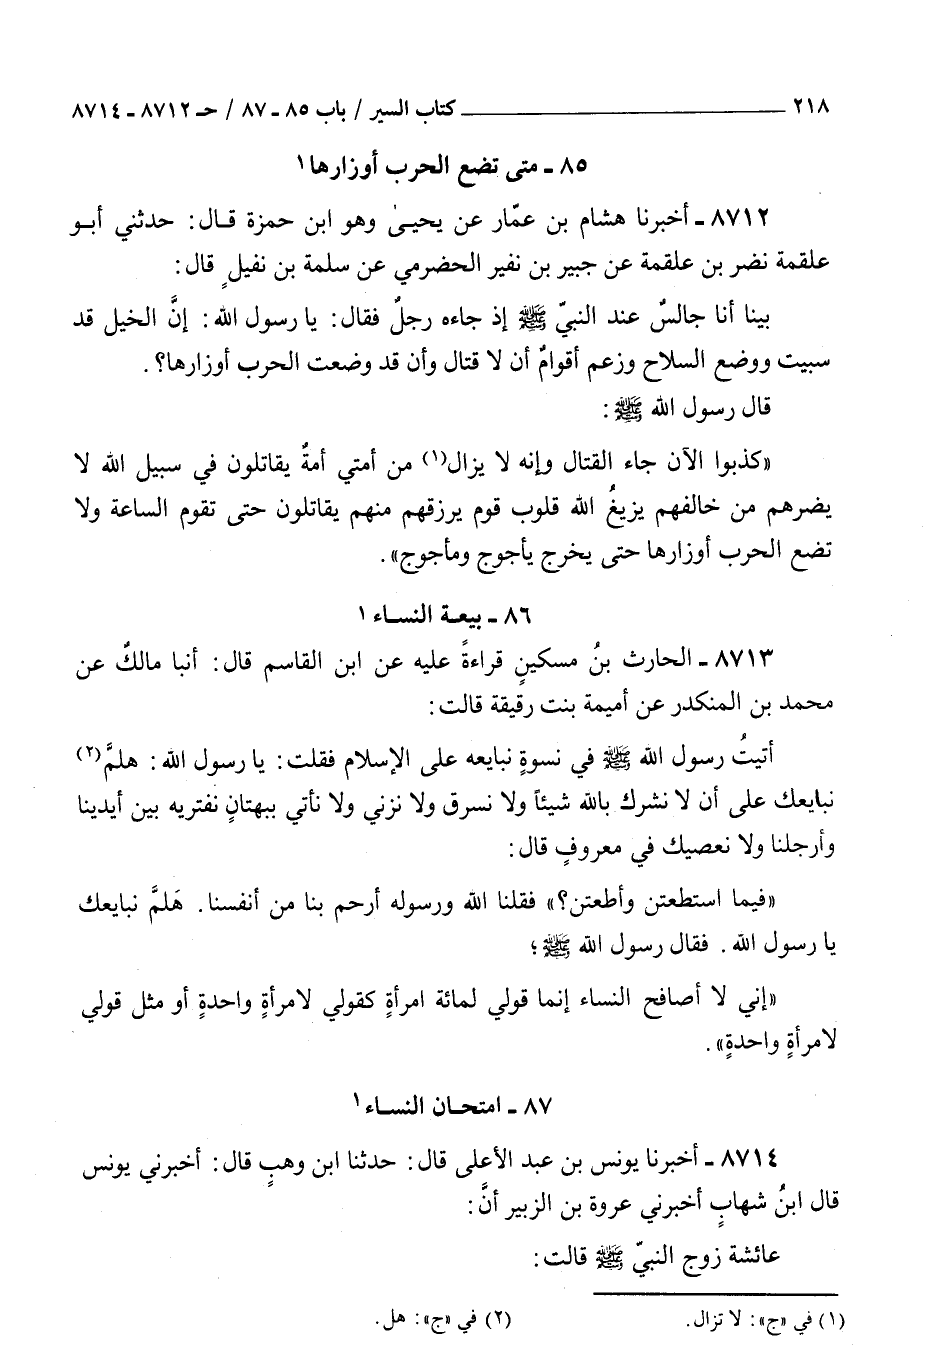 ٢١٨ ــــــــــــــــــ كتاب السير / باب ٨٥ ـ ٨٧ / حـ ٨٧١٢ ـ ٨٧١٤
٨٥ ـ متى تضع الحرب أوزارها ١
٨٧١٢ ـ أخبرنا هشام بن عمّار عن يحيىٰ وهو ابن حمزة قال: حدثني أبو
علقمة نضر بن علقمة عن جبير بن نفير الحضرمي عن سلمة بن نفيلٍ قال:
بينا أنا جالسٌ عند النبيّ ﷺ إذ جاءه رجلٌ فقال: يا رسول الله: إنَّ الخيل قد
سبيت ووضع السلاح وزعم أقوامٌ أن لا قتال وأن قد وضعت الحرب أوزارها؟.
قال رسول الله ﷺ:
«كذبوا الآن جاء القتال وإنه لا يزال(١) من أمتي أمةٌ يقاتلون في سبيل الله لا
يضرهم من خالفهم يزيغُ الله قلوب قوم يرزقهم منهم يقاتلون حتى تقوم الساعة ولا
تضع الحرب أوزارها حتى يخرج يأجوج ومأجوج».
٨٦ ـ بيعة النساء ١
٨٧١٣ ـ الحارث بنُ مسكينٍ قراءةً عليه عن ابن القاسم قال: أنبا مالكٌ عن
محمد بن المنكدر عن أميمة بنت رقيقة قالت:
أتيتُ رسول الله ﷺ في نسوةٍ نبايعه على الإسلام فقلت: يا رسول الله: هلمَّ(٢)
نبايعك على أن لا نشرك بالله شيئاً ولا نسرق ولا نزني ولا نأتي ببهتانٍ نفتريه بين أيدينا
وأرجلنا ولا نعصيك في معروفٍ قال:
«فيما استطعتن وأطعتن؟» فقلنا الله ورسوله أرحم بنا من أنفسنا. هَلمَّ نبايعك
يا رسول الله. فقال رسول الله ﷺ؛
«إني لا أصافح النساء إنما قولي لمائة امرأةٍ كقولي لامرأةٍ واحدةٍ أو مثل قولي
لامرأةٍ واحدةٍ».
٨٧ ـ امتحان النساء ١
٨٧١٤ ـ أخبرنا يونس بن عبد الأعلى قال: حدثنا ابن وهبٍ قال: أخبرني يونس
قال ابنُ شهابٍ أخبرني عروة بن الزبير أنَّ:
عائشة زوج النبيّ ﷺ قالت:
(١) في «ج»: لا تزال. (٢) في «ج»: هل.